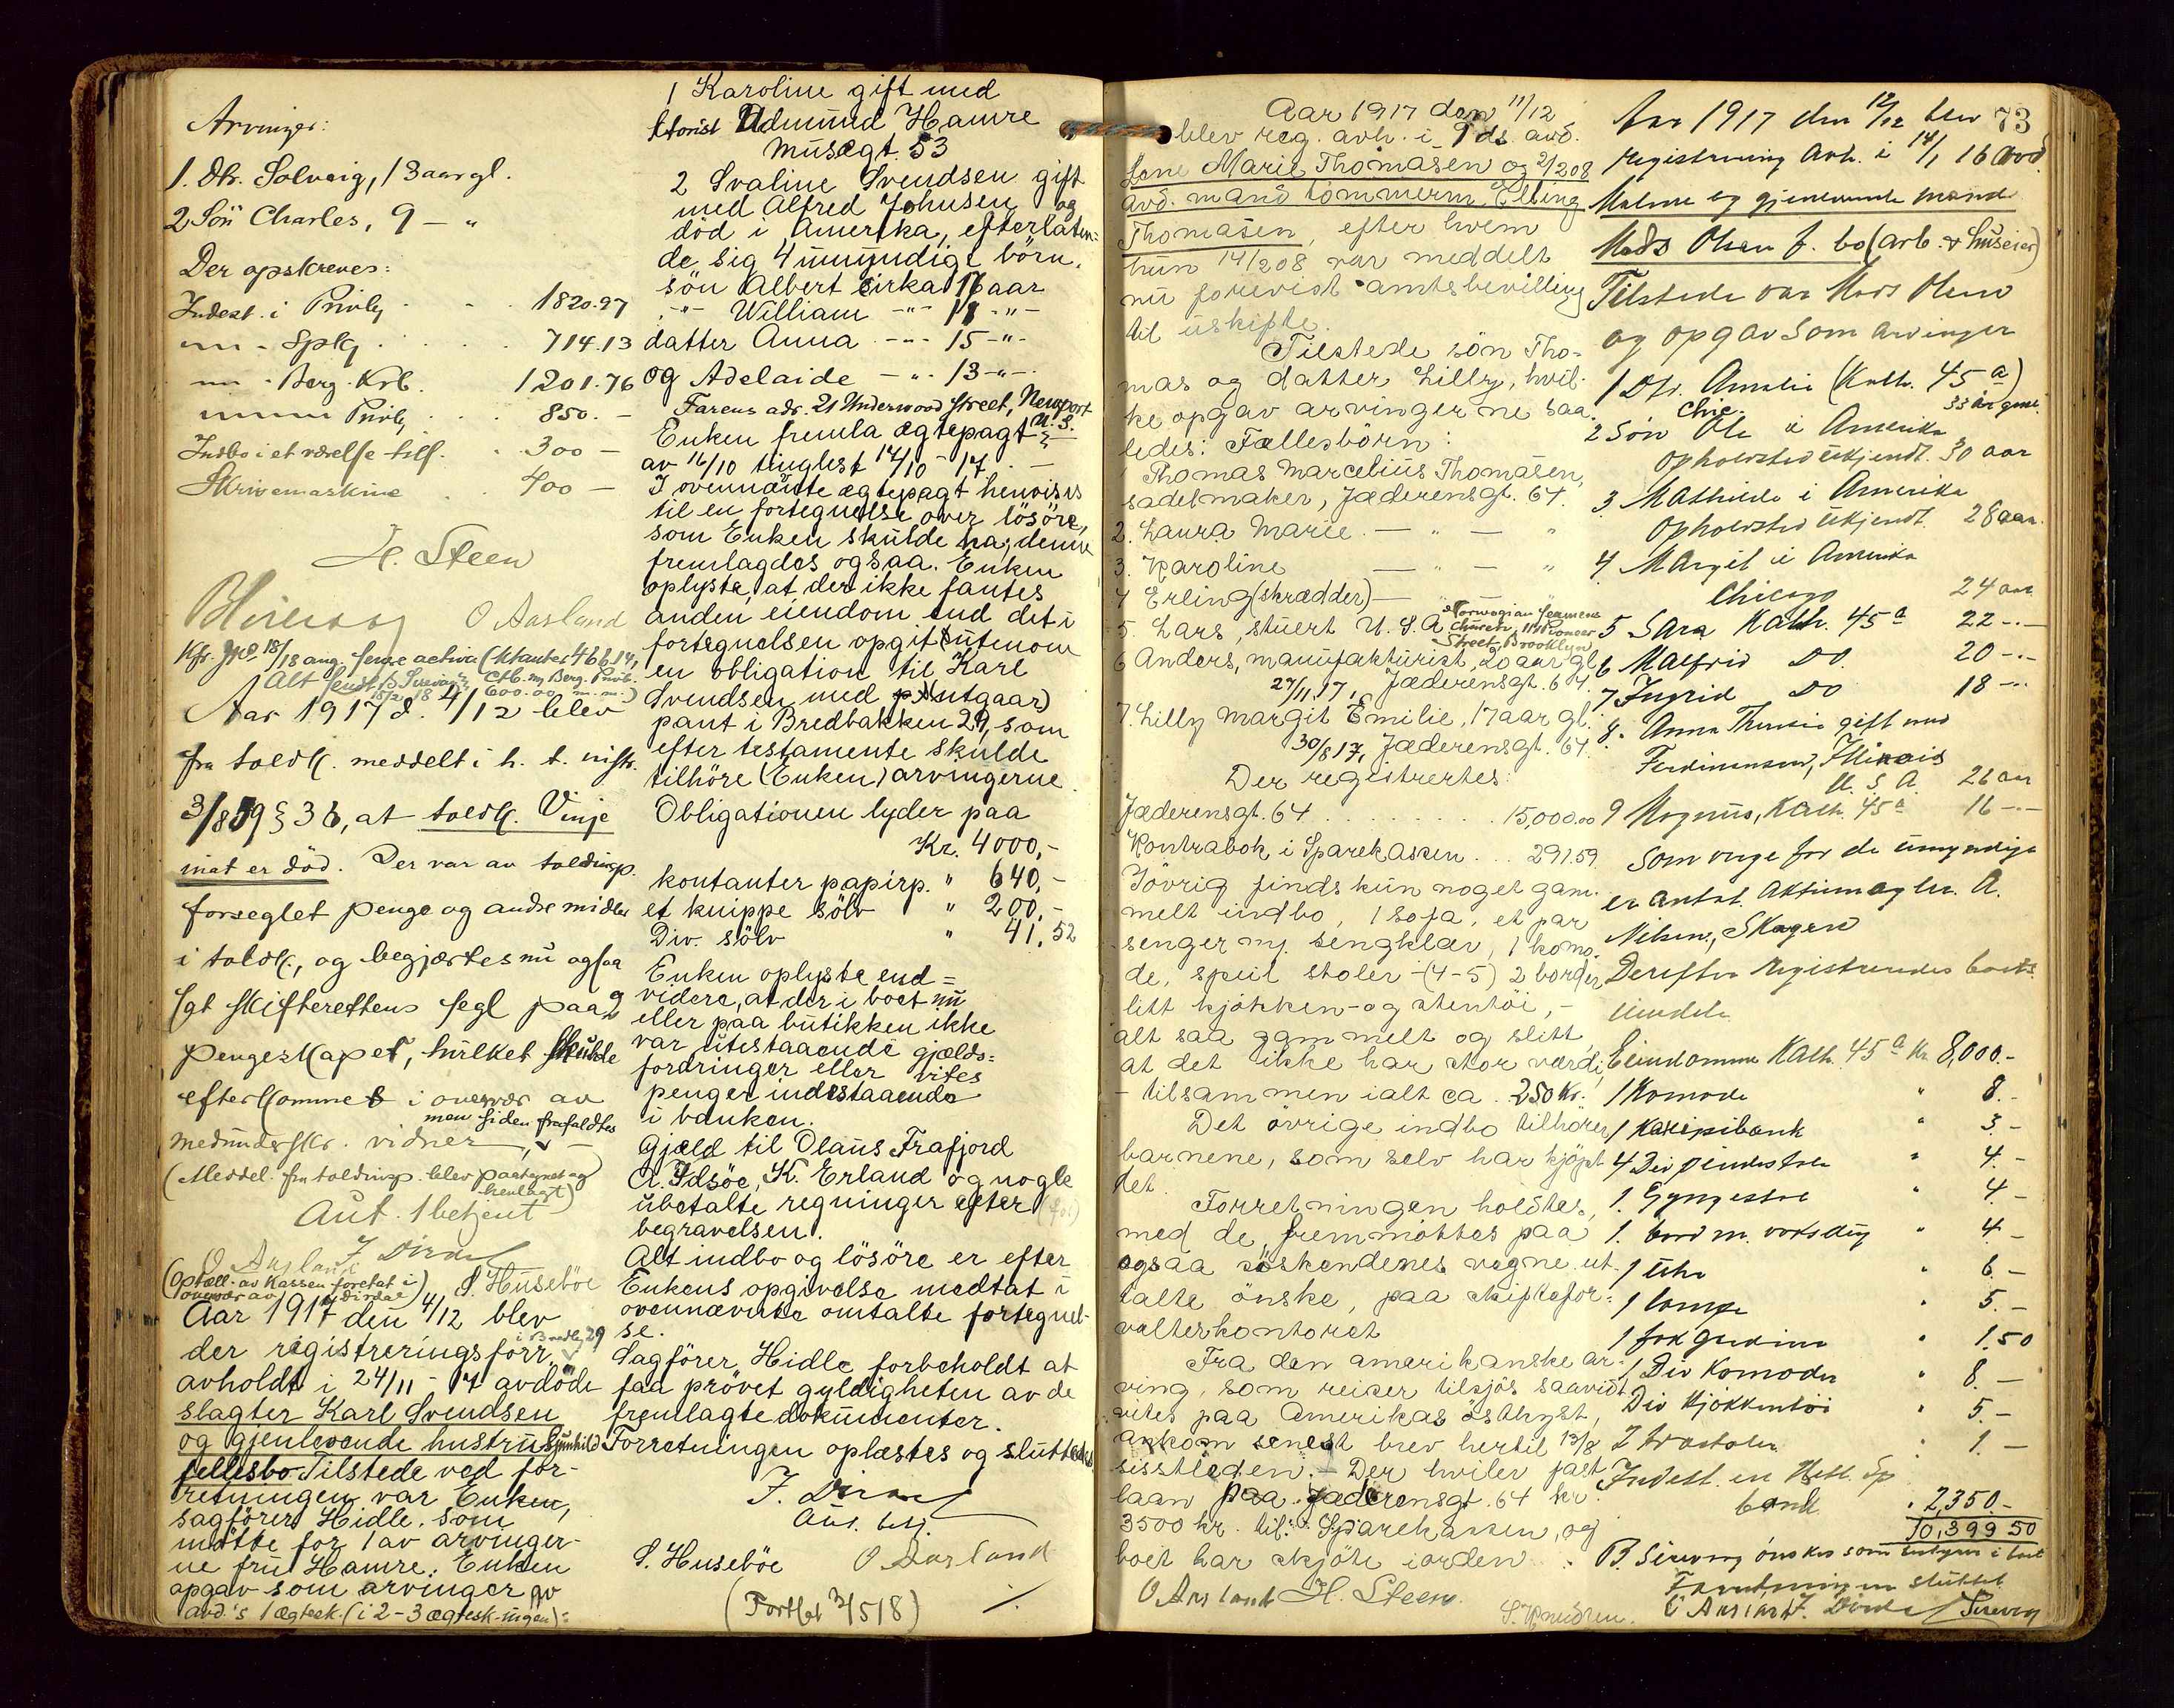 Arvinger:
1. Dtr. Solveig, 13 aar gl.
2 Sön Charles, 9 — "
Der opskreves:
Indest. i Privb. 1820.97
— " — Spkg. 714.13
— " — Berg. Krb. 1201.76
— " — Privb. 850.—
Indbo i et værelse tils. 300 —
Skrivemaskine 400 —
H. Steen
O Aasland
Aar 1917 d. 4/12 blev
fra toldk. meddelt i h. t. instr.
§ 36, at toldk. Vinje
nat er död. Der var av toldinsp.
forseglet penge og andre midler
i toldk., og begjærtes nu ogsaa
sat skifterettens segl paa
pengeskapet, hvilket skulde
efterkommes i overvær av
men siden frafaldtes
medunderskr. vidner
(Meddel. fra toldinsp. blev paategnet og
henlagt)
Aut. 1 betjent
O Aasland
S. Huseböe
(Optæll. av kassen foretat i
overvær av Dirdal)
Aar 1917 den 4/12 blev
i Bredbg 29
der registreringsforr.
avholdt i 24/11 - 17 avdöde
slagter Karl Svendsen
og gjenlevende hustru Gunhild
fellesbo. Tilstede ved for-
retningen var Enken,
sagförer Hidle, som
mötte for 1 av arvinger-
ne fru Hamre. Enken
opgav som arvinger av
avd.'s 1 ægtesk. (i 2 - 3 ægtesk. ingen):
1 Karoline gift med
Edmund Hamre
Musegt. 53
2 Svaline Svendsen gift
med Alfred Johnsen og
död i Amerika, efterlaten=
de sig 4 umyndige börn,
sön Albert cirka 17 aar
— " — William — " — 18 — " —
datter Anna — " — 15 — " —
og Adelaide — " — 13 — " —
Farens adr. 21 Underwood Street, Newport
U. S.
Enken fremla ægtepagt
av 16/10 tinglest 17/10 - 17.
I ovennævnte ægtepagt henvises
til en fortegnelse over lösöre,
som Enken skulde ha; denne
fremlagdes ogsaa. Enken
oplyste, at der ikke fantes
anden eiendom end det i
fortegnelsen opgit utenom
en obligation til Karl
Svendsen med p (utgaar)
pant i Bredbakken 29, som
efter testamente skulde
tilhöre (Enken) arvingerne.
Obligationen lyder paa
Kr. 4000,-
kontanter papirp. " 640,-
et knippe sölv " 200,-
Div. sölv " 41,52
Enken oplyste end=
videre, at der i boet nu
eller paa butikken ikke
var utestaaende gjælds=
fordringer eller vites
penger indestaaende
i banken.
Gjæld til Olaus Frafjord
A. Idsöe, K. Erland og nogle
ubetalte regninger efter
begravelsen.
Alt indbo og lösöre er efter
Enkens opgivelse medtat i
ovennævnte omtalte fortegnel-
se.
Sagförer Hidle forbeholdt at
faa prövet gyldigheten av de
fremlagte dokumenter.
Forretningen oplæstes og sluttedes.
Aut. betj.
S. Huseböe O Aasland
Aar 1917 den 11/12
blev reg. avh. i 9 ds. avd.
Lene Marie Thomasen og 2/2 08
avd. mand tömmerm. Elling
Thomasen, efter hvem
hun 14/2 08 var meddelt
nu forevist amtsbevilling
til uskifte.
Tilstede sön Tho-
mas og datter Lilly, hvil-
ke opgav arvingerne saa-
ledes: Fællesbörn:
Thomas Marcelius Thomasen,
sadelmaker, Jæderensgt. 64.
2. Laura Marie — " — "
3. Karoline — " — "
4 Erling (skrædder) — " —
5. Lars, stuert U. S. A Norwegian Seamens
Church, 111 Pioneer
Street, Brooklyn
6 Anders, manufakturist, 20 aar gl.
27/11 17, Jæderensgt. 64.
7. Lilly Margit Emilie, 17 aar gl.
30/8 17, Jæderensgt. 64.
Der registrertes:
Jæderensgt. 64 15,000.00
Kontrabok i Sparekassen 291.59
Iövrig finds kun noget gam-
melt indbo, 1 sofa, et par
senger m. sengklær, 1 komo-
de, speil stoler - (4-5) 2 border
litt kjökken- og stentöi, -
alt saa gammelt og slitt
at det ikke har stor værdi,
- tilsammen ialt ca. 250 Kr.
Det övrige indbo tilhörer
barnene, som selv har kjöpt
det.
Forretningen holdtes,
med de fremmöttes paa
ogsaa söskendenes vegne ut-
talte önske, paa skiftefor-
valterkontoret
Fra den amerikanske ar-
ving, som reiser tilsjös saavidt
vites paa Amerikas östkyst,
ankom senest brev hertil 13/8
sisstleden. - Der hviler fast
laan paa Jæderensgt. 64 kr.
3500 kr. til Sparekassen, og
boet har skjöte iorden.
O Aasland H. Steen.
S. Knudsen.
73
Aar 1917 den 12/12 blev
registrering avh. i 14/1 16 avd.
Malene og gjenlevende mand
Mads Olsen f. bo (arb. & huseier)
Tilstede var Mads Olsen
og opgav som arvinger
1 Dtr. Amalie (Kath. 45 a)
33 år gml.
2 Sön Ole i Amerika
opholdsted ukjendt. 30 aar
3 Mathilde i Amerika
Opholdsted ukjendt. 28 aar.
4 Margit i Amerika
Chicago 24 aar
5 Sara Kath. 45 a 22 — " —
6 Malfrid DO. 20 — " —
7 Ingrid DO 18 — " —
8. Anna Thersie gift med
Ferdinansen, Illinois
U. S. A. 26 aar
9 Magnus, Kath. 45 a 16 — " —
Som verge for de umyndige
er antat. Aktiemægler. A.
Nilsen, Skagen
Derefter registreredes boets
eiendele
Eiendomme Kath. 45 a Kr. 8,000.-
1 Komode " 8.-
1 " 3.-
4 Div pindestole " 4.-
1. Gyngestol " 4 -
1. bord m. voksdug " 4 -
1 Uhr " 6.-
1 lampe " 5.-
1 fag gardiner " 1.50
1 Div Komoder " 8.-
Div Kjökkentöi " 5.-
2 trastoler " 1.-
Indest. en Hetl. Sp
bank " 2,350.-
10,399 50
Forretningen sluttet
O Aasland